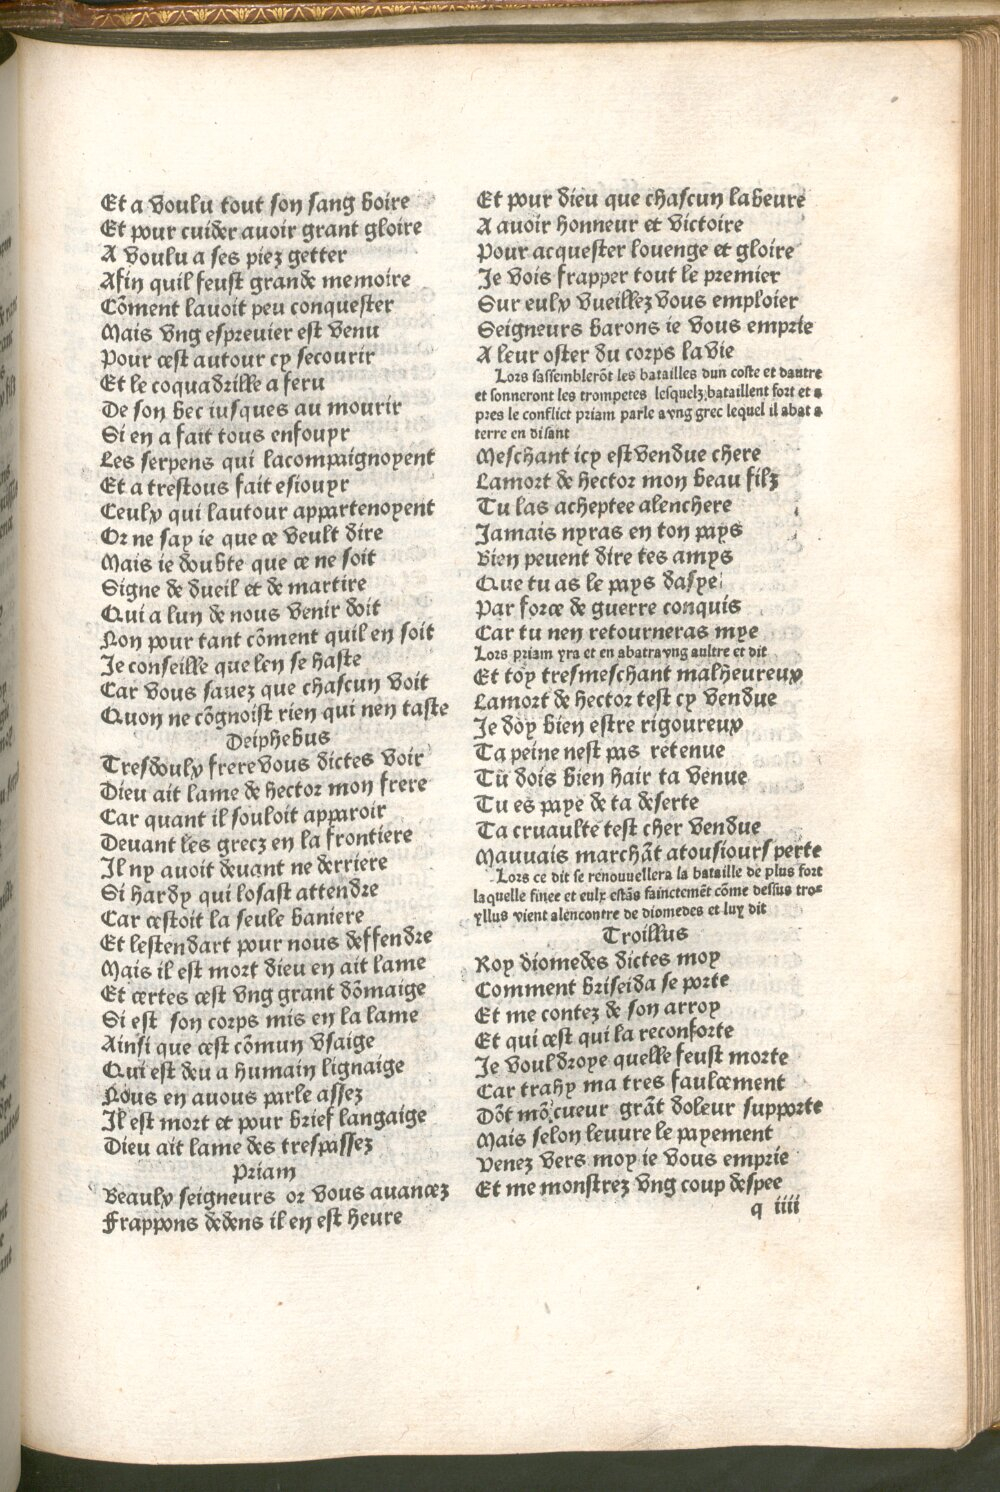 Et a voulu tout son sang boire
Et pour cuider auoir grant gloire
A voulu a ses piez getter
Afin quil feust grande memoire
Cōment lauoit peu conquester
Mais vng espreuier est venu
Pour cest autour cy secourir
Et le coquadrille a feru
De son bec iusques au mourir
Si en a fait tous enfouyr
Les serpens qui lacompaignoyent
Et a trestous fait esiouyr
Ceulx qui lautour appartenoyent
Or ne say ie que ce veult dire
Mais ie doubte que ce ne soit
Signe de dueil et de martire
Qui a lun de nous venir doit
Non pour tant cōment quil en soit
Je conseille que len se haste
Car vous sauez que chascun voit
Quon ne cōgnoist rien qui nen taste
Deiphebus
Tresdoulx frere vous dictes voir
Dieu ait lame de hector mon frere
Car quant il souloit apparoir
Deuant les grecz en la frontiere
Il ny auoit deuant ne derriere
Si hardy qui losast attendre
Car cestoit la seule baniere
Et lestendart pour nous deffendre
Mais il est mort dieu en ait lame
Et certes cest vng grant dōmaige
Si est son corps mis en la lame
Ainsi que cest cōmun vsaige
Qui est deu a humain lignaige
Nous en auous parle assez
Il est mort et pour brief langaige
Dieu ait lame des trespassez
Priam
Beaulx seigneurs or vous auancez
Frappons dedens il en est heure
Et pour dieu que chascun labeure
A auoir honneur et victoire
Pour acquester louenge et gloire
Je vois frapper tout le premier
Sur eulx vueillez vous emploier
Seigneurs barons ie vous emprie
A leur oster du corps la vie
Lors sassemblerōt les batailles dun coste et dautre
et sonneront les trompetes lesquelz bataillent fort et a
pres le conflict priam parle a vng grec lequel il abat a
terre en disant
Meschant icy est vendue chere
La mort de hector mon beau filz
Tu las acheptee alenchere
Jamais nyras en ton pays
Bien peuent dire tes amys
Que tu as le pays dasye
Par force de guerre conquis
Car tu nen retourneras mye
Lors priam yra et en abatra vng aultre et dit
Et toy tresmeschant malheureux
La mort de hector test cy vendue
Je doy bien estre rigoureux
Ta peine nest pas retenue
Tu dois bien hair ta venue
Tu es paye de ta deserte
Ta cruaulte test cher vendue
Mauuais marchāt a tousiours perte
Lors ce dit se renouuellera la bataille de plus fort
laquelle finee et eulx estās fainctemēt cōme dessus tro=
yllus vient alencontre de diomedes et luy dit
Troillus
Roy diomedes dictes moy
Comment briseida se porte
Et me contez de son arroy
Et qui cest qui la reconforte
Je vouldroye quelle feust morte
Car trahy ma tres faulcement
Dōt mō cueur grāt doleur supporte
Mais selon leuure le payement
Venez vers moy ie vous emprie
Et me monstrez vng coup despee
q iiii